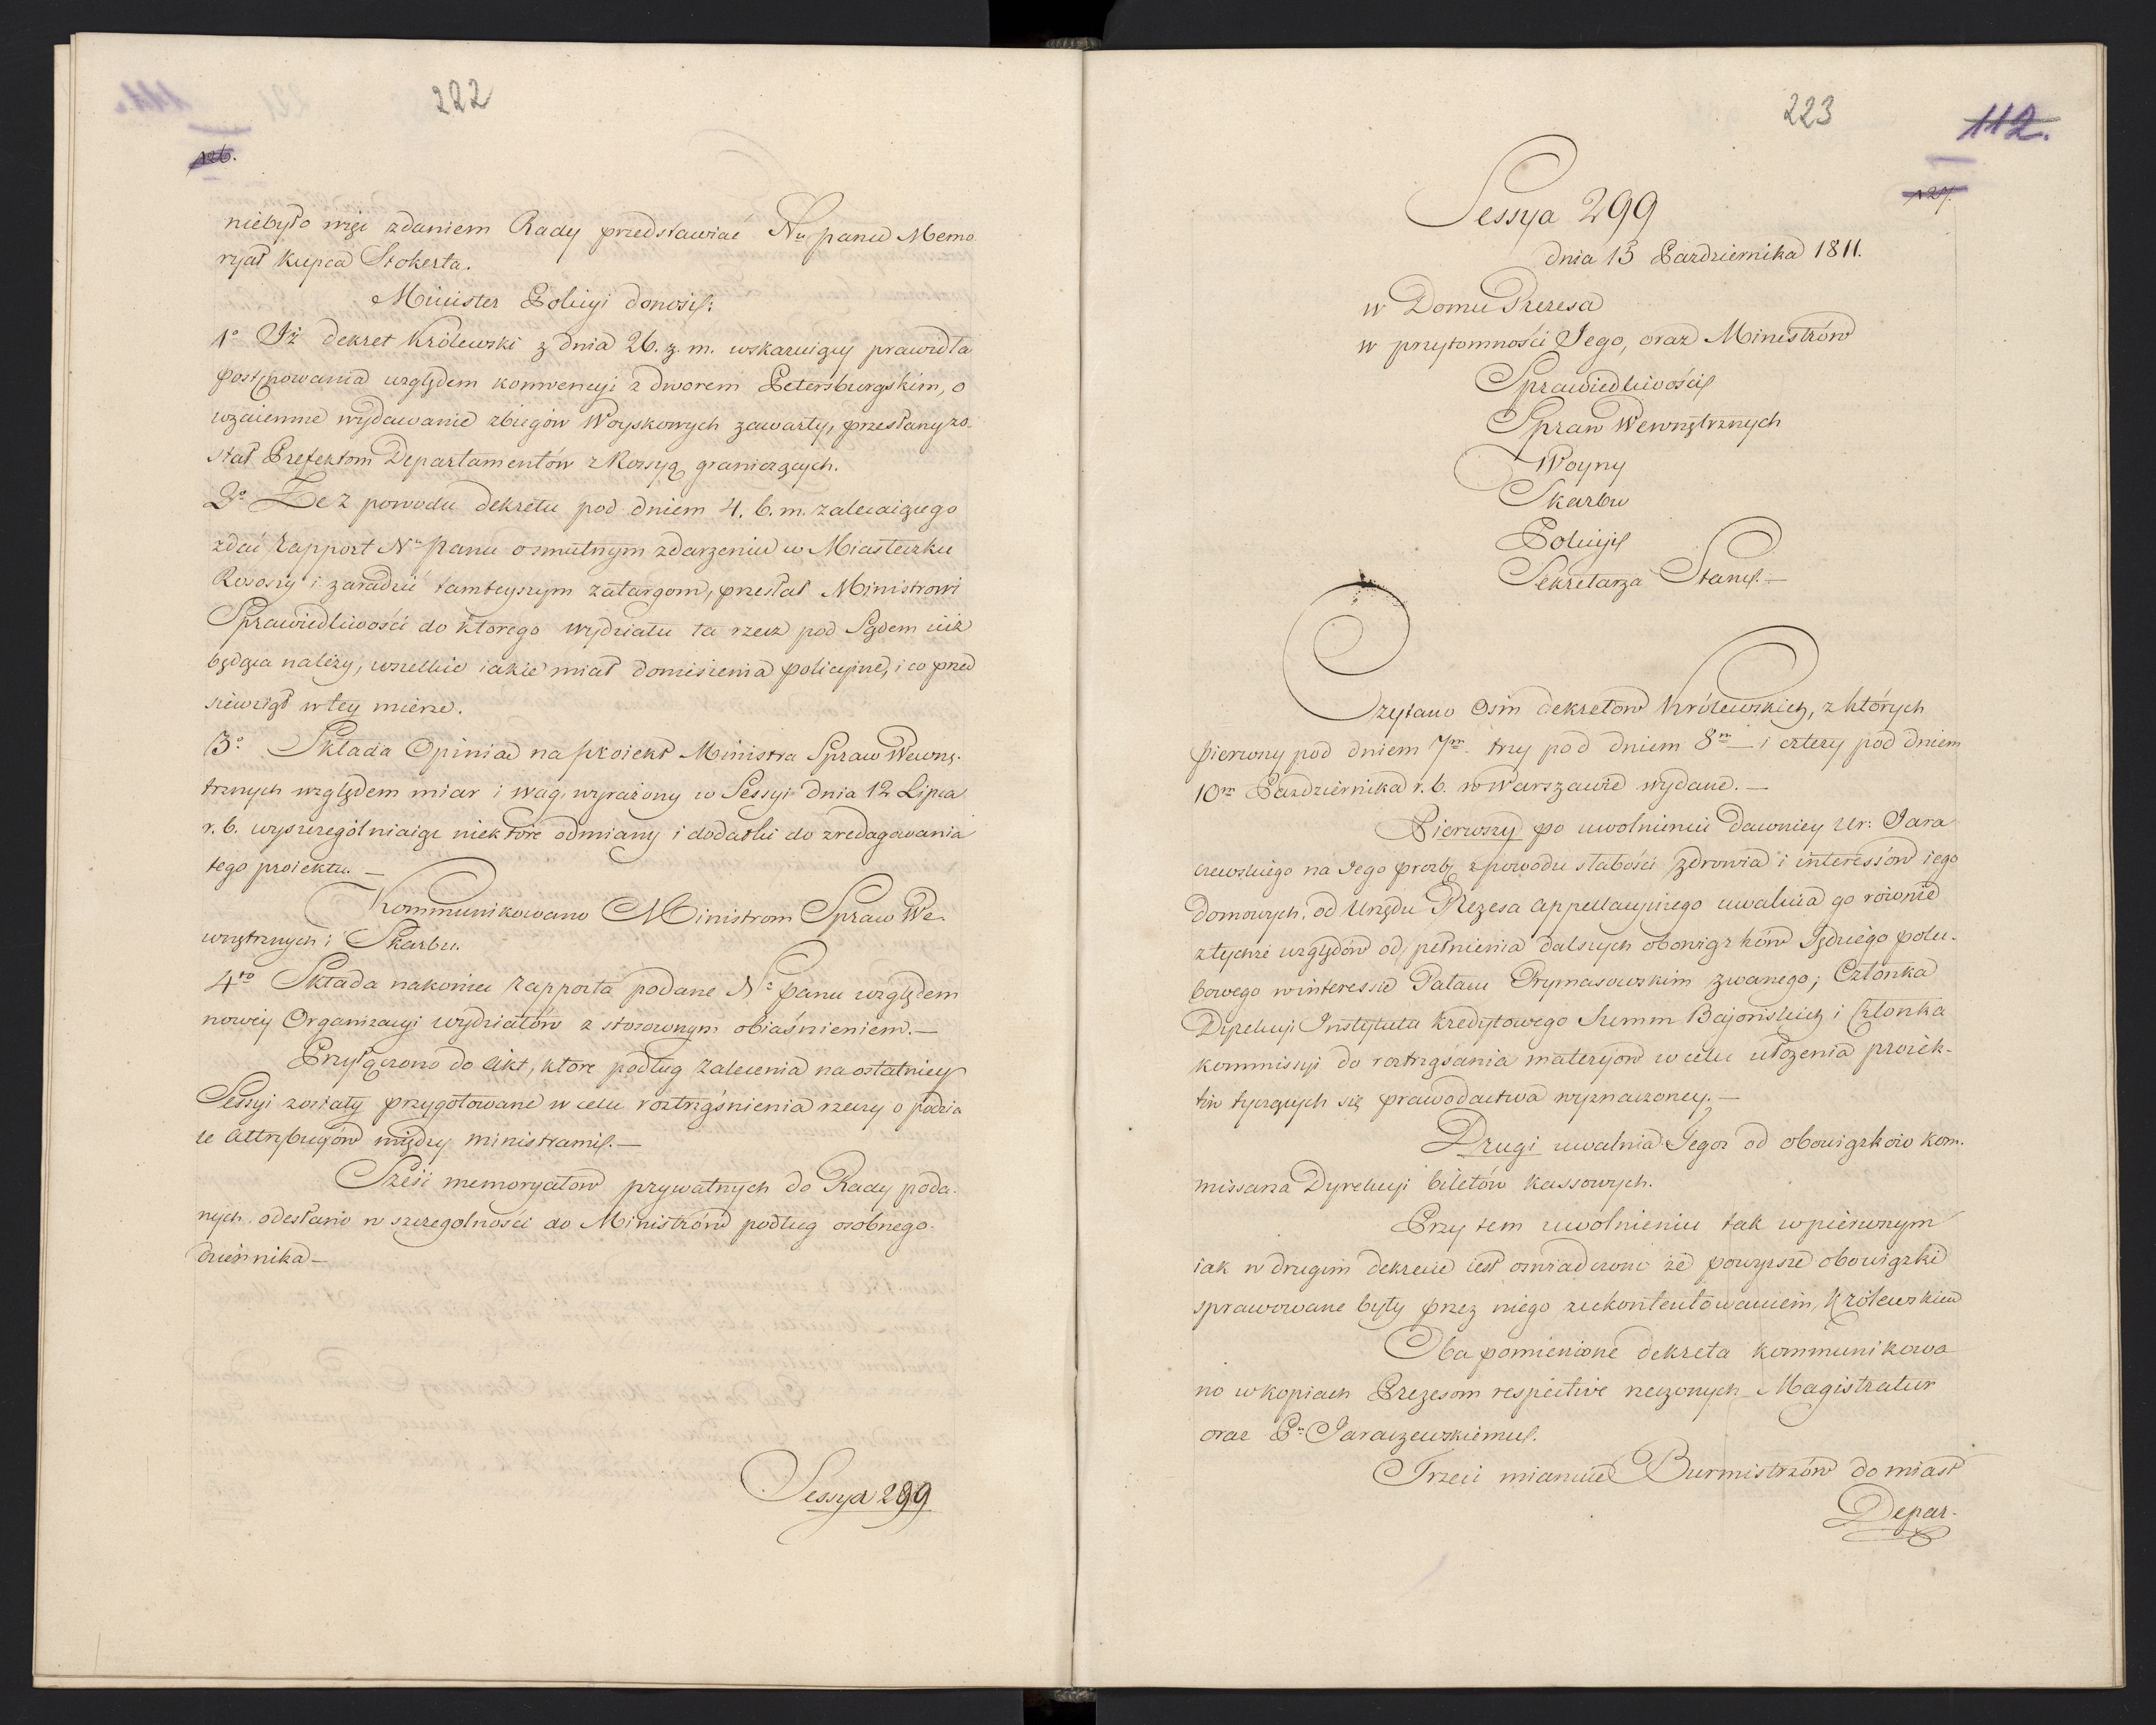 222
126.
niebyło więc zdaniem Rady przedstawiać Nu panu Memo
ryał kupca Stokerta.
Minister Policyi donosił:
1o Iż dekret Królewski z dnia 26. z. m. wskazuiący prawidła
postępowania względem konwencyi z dworem Petersburgskim, o
wzaiemne wydawanie zbiegów Woyskowych zawarty, przesłany zo-
stał Prefektom Departamentów z Rossyą graniczących.
2o Że z powodu dekretu pod dniem 4. b. m. zalecaiącego
zdać rapport Nu Panu o smutnym zdarzeniu w Miasteczku
Rososzy i zaradzić tamteyszym zatargom, przesłał Ministrowi
Sprawiedliwości do którego wydziału ta rzecz pod Sądem iuż
będąca należy, wszelkie iakie miał doniesienia policyine, i co przed
siewziął w tey mierze.
3o Składa Opinią na proiekt Ministra Spraw Wewnę-
trznych względem miar i wag, wyrażony w Sessyi dnia 12 Lipca
r. b. wyszczególniaiąc niektóre odmiany i dodatki do zredagowania
tego proiektu. —
Kommunikowano Ministrom Spraw We-
wnętrznych i Skarbu.
4to Składa nakoniec rapporta podane No panu względem
nowey Organizacyi wydziałów z stosownym obiaśnieniem. —
Przyłączono do Akt, które podług zalecenia na ostatniey
Sessyi zostały przygotowane w celu roztrząśnienia rzeczy o podzia
le Attrybucyów między ministrami. —
Sześć memoryałów prywatnych do Rady poda-
nych, odesłano w szczególności do Ministrów podług osobnego
dziennika —
Sessya 299
223
112.
127.
Sessya 299
dnia 13 Października 1811.
w Domu Prezesa
w przytomności Jego, oraz Ministrów
Sprawiedliwości
Spraw Wewnętrznych
Woyny
Skarbu
Policyi
Sekretarza Stanu. —
Czytano Osm dekretów Królewskich, z których
pierwszy pod dniem 7m. trzy pod dniem 8m — i cztery pod dniem
10m Października r. b. w Warszawie wydane. —
Pierwszy po uwolnieniu dawniey Ur: Jara
czewskiego na Jego prozbę z powodu słabości zdrowia i interessów iego
domowych, od Urzędu Prezesa appellacyinego uwalnia go równie
z tychże względów od pełnienia dalszych obowiązków Sędziego polu-
bowego w interessie Pałacu Prymasowskim zwanego; Członka
Dyrekcyi Instytutu kredytowego Summ Bajońskich i Członka
kommissyi do roztrząsania materyów w celu ułożenia proiek-
tów tyczących się prawodawstwa wyznaczoney. —
Drugi uwalnia Tegoż od obowiązków kom-
missarza Dyrekcyi biletów kassowych.
Przy tem uwolnieniu tak w pierwszym
iak w drugim dekrecie iest oswiadczono że powyższe obowiązki
sprawowane były przez niego z ukontentowaniem Królewskiem
Oba pomienione dekreta kommunikowa
no w kopiach Prezesom respective rzeczonych Magistratur
oraz Pu Jaraczewskiemu.
Trzeci mianuie Burmistrzów do miast
Depar-